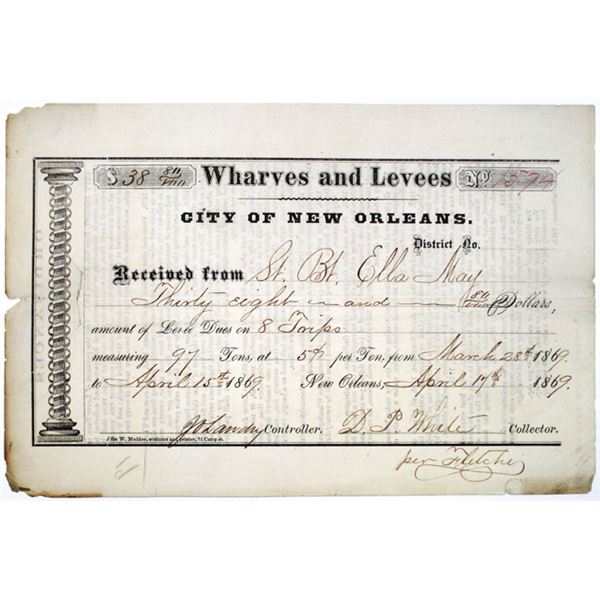 $ 38 80/100 Wharves and Levees No. 1574
CITY OF NEW ORLEANS.
District No.
Received from St. Bt. Ella May
Thirty eight and 80/100 Dollars,
amount of Levee Dues on 8 Trips
measuring 97 Tons, at 5¢ per Ton, from March 28th 1869.
to April 15th 1869. New Orleans, April 17th 1869.
Controller. D. P. White Collector.
John W. Madden, stationer and printer, 73 Camp st.
per